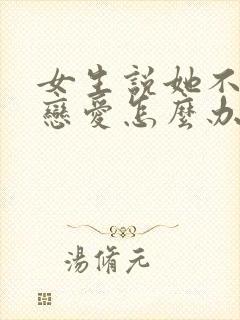 女生説她不
戀愛怎麼办
湯脩元